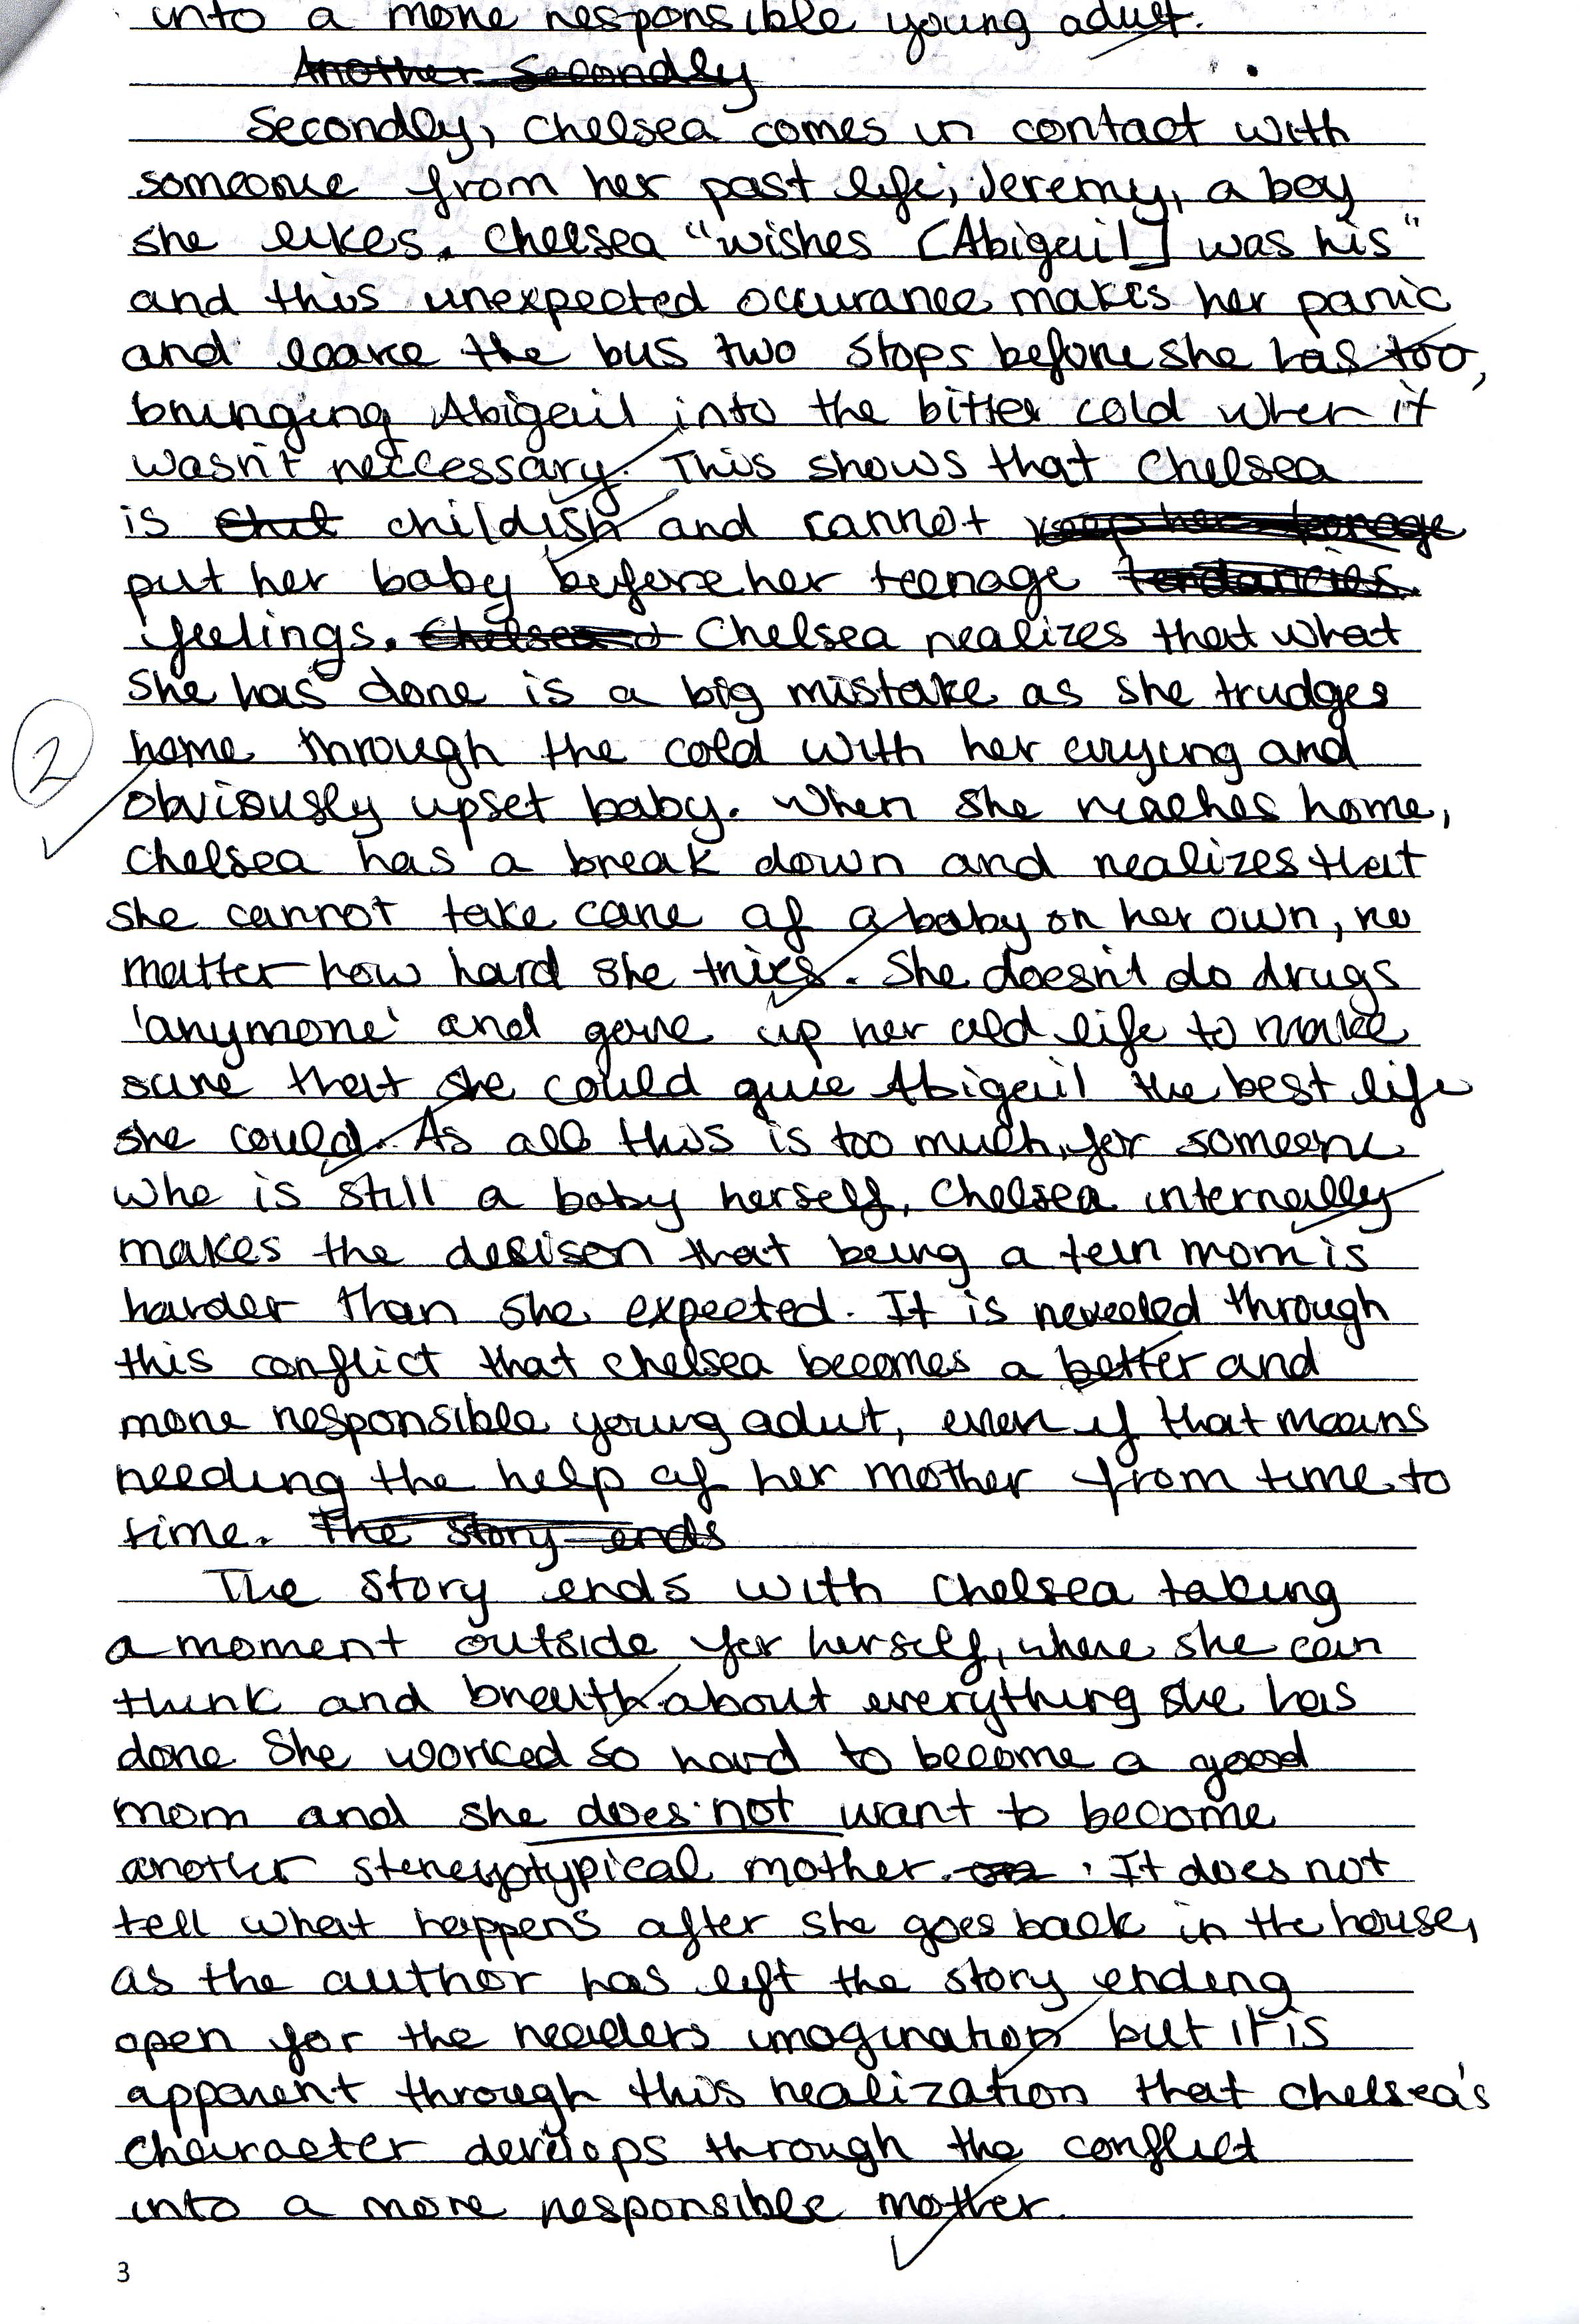 into a more responsible young adult.
Another Secondly
Secondly, Chelsea comes in contact with
someone from her past life; Jeremy, a boy
she likes. Chelsea "wishes [Abigail] was his"
and this unexpected occurance makes her panic
and leave the bus two stops before she has too,
bringing Abigail into the bitter cold when it
wasn't neccessary. This shows that Chelsea
is childish and cannot keep her teenage
put her baby before her teenage tendancies.
feelings. Chelsea Chelsea realizes that what
she has done is a big mistake as she trudges
2
home through the cold with her crying and
obviously upset baby. When she reaches home,
Chelsea has a break down and realizes that
she cannot take care of a baby on her own, no
matter how hard she tries. She doesn't do drugs
'anymore' and gave up her old life to make
sure that she could give Abigail the best life
she could. As all this is too much for someone
who is still a baby herself, Chelsea internally
makes the desison that being a teen mom is
harder than she expected. It is reveeled through
this conflict that Chelsea becomes a better and
more responsible young adut, even if that means
needing the help of her mother from time to
time. The story ends
The story ends with Chelsea taking
a moment outside for herself, where she can
think and breath about everything she has
done She worked so hard to become a good
mom and she does not want to become
another stereyotypical mother. It does not
tell what happens after she goes back in the house,
as the author has left the story ending
open for the readers imagination but it is
apparent through this realization that Chelsea's
character develops through the conflict
into a more responsible mother.
3